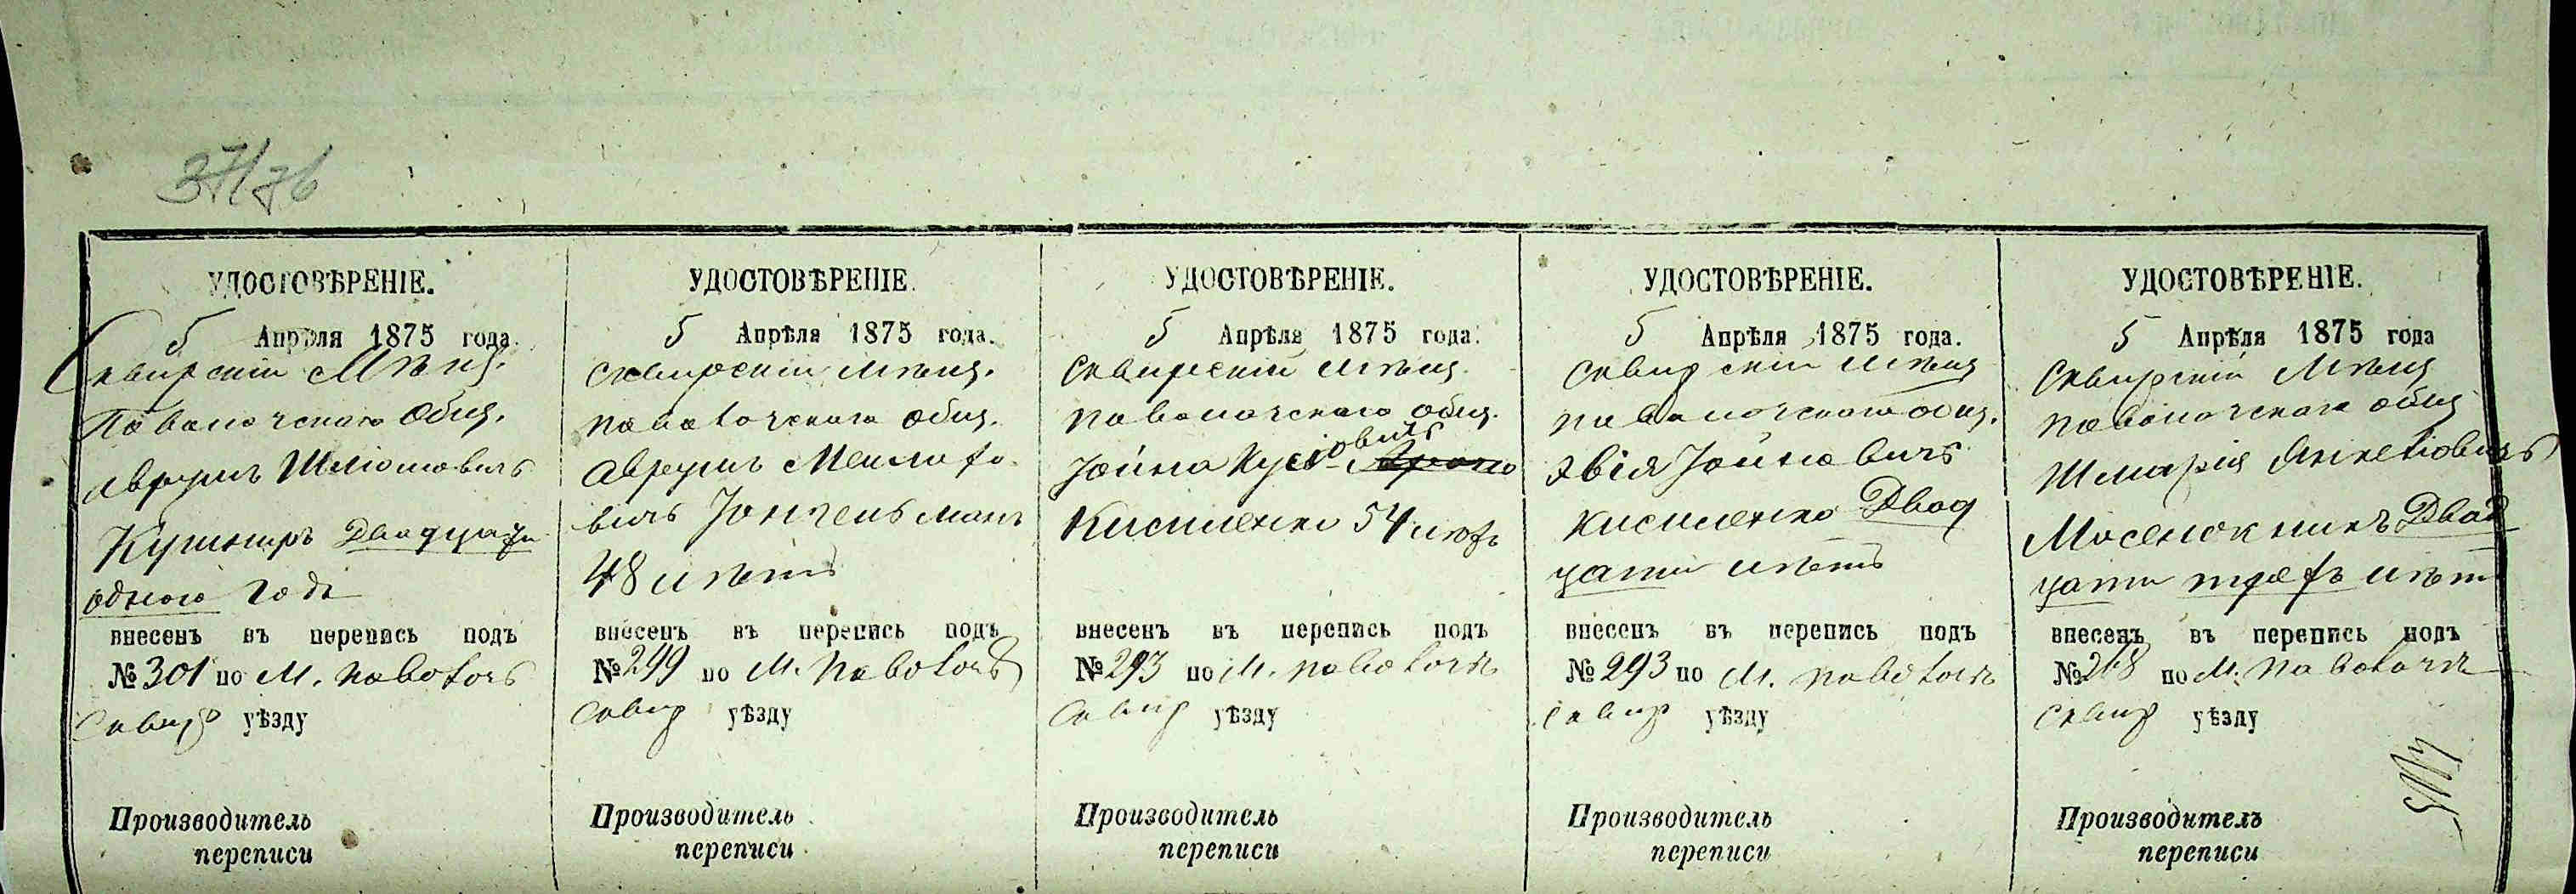 37/76
УДОСТОВѢРЕНІЕ.
5 Апрѣля 1875 года.
Сквирскій Мѣщ.
Паволочскаго Общ.
Аврумъ Шліомовичъ
Кушниръ Двадцати
одного года
внесенъ въ перепись подъ
№ 301 по М. Паволочъ
Сквир уѣзду
Производитель
переписи
УДОСТОВѢРЕНІЕ.
5 Апрѣля 1875 года.
Сквирскій Мѣщ.
Паволочскаго Общ.
Аврумъ
вичъ
48 лѣтъ
внесенъ въ перепись подъ
№ 299 по М. Паволочѣ
Сквир уѣзду
Производитель
переписи
УДОСТОВѢРЕНІЕ.
5 Апрѣля 1875 года.
Сквирскій Мѣщ.
Паволочскаго общ.
Іойна овичъ
Кисиленко 54 лѣтъ
внесенъ въ перепись подъ
№ 293 по М. Паволочѣ
Сквир уѣзду
Производитель
переписи
УДОСТОВѢРЕНІЕ.
5 Апрѣля 1875 года.
Сквирскій Мѣщ
Паволочскаго общ.
Іойновичъ
Кисиленко Двад
цати лѣтъ
внесенъ въ перепись подъ
№ 293 по М. Паволочѣ
Сквир уѣзду
Производитель
переписи
УДОСТОВѢРЕНІЕ.
5 Апрѣля 1875 года
Сквирскій Мѣщ
Паволочскаго общ
Шмарія Янкеліовичъ
Двад
цати трехъ лѣтъ
внесенъ въ перепись подъ
№ 268 по М. Паволочѣ
Сквир уѣзду
Производитель
переписи